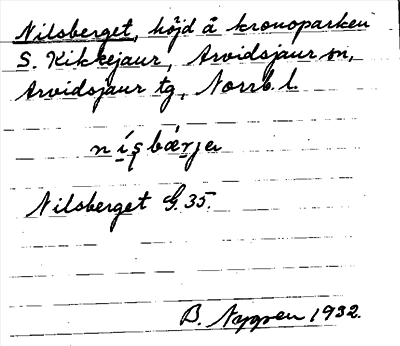 Nilsberget, höjd å kronoparken
S. Kikkejaur, Arvidsjaur sn,
Arvidsjaur tg, Norrb. l.
Nilsberget G. 35.
B. Nygren 1932.